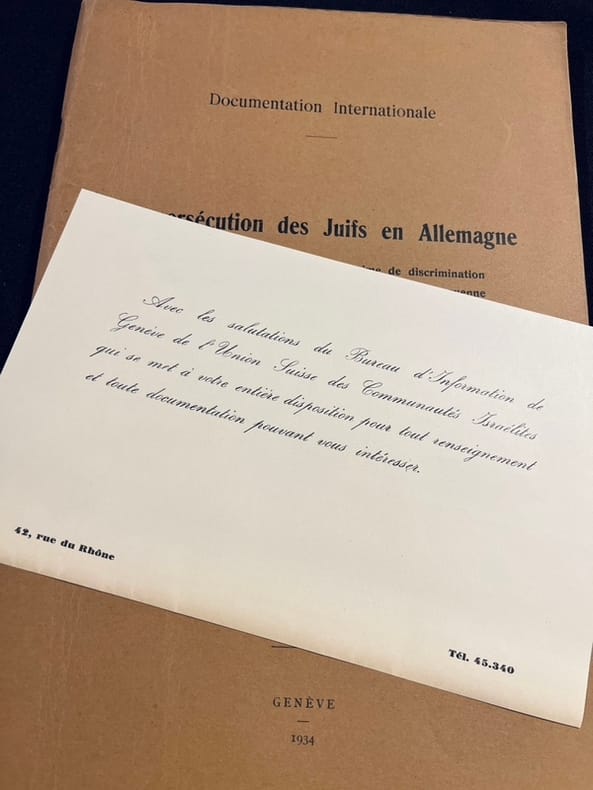 Documentation Internationale
des Juifs en Allemagne
de discrimination
Avec les salutations du Bureau d'Information de
Genève de l'Union Suisse des Communautés Israélites
qui se met à votre entière disposition pour tout renseignement
et toute documentation pouvant vous intéresser.
42, rue du Rhône
Tél. 45.340
GENÈVE
1934